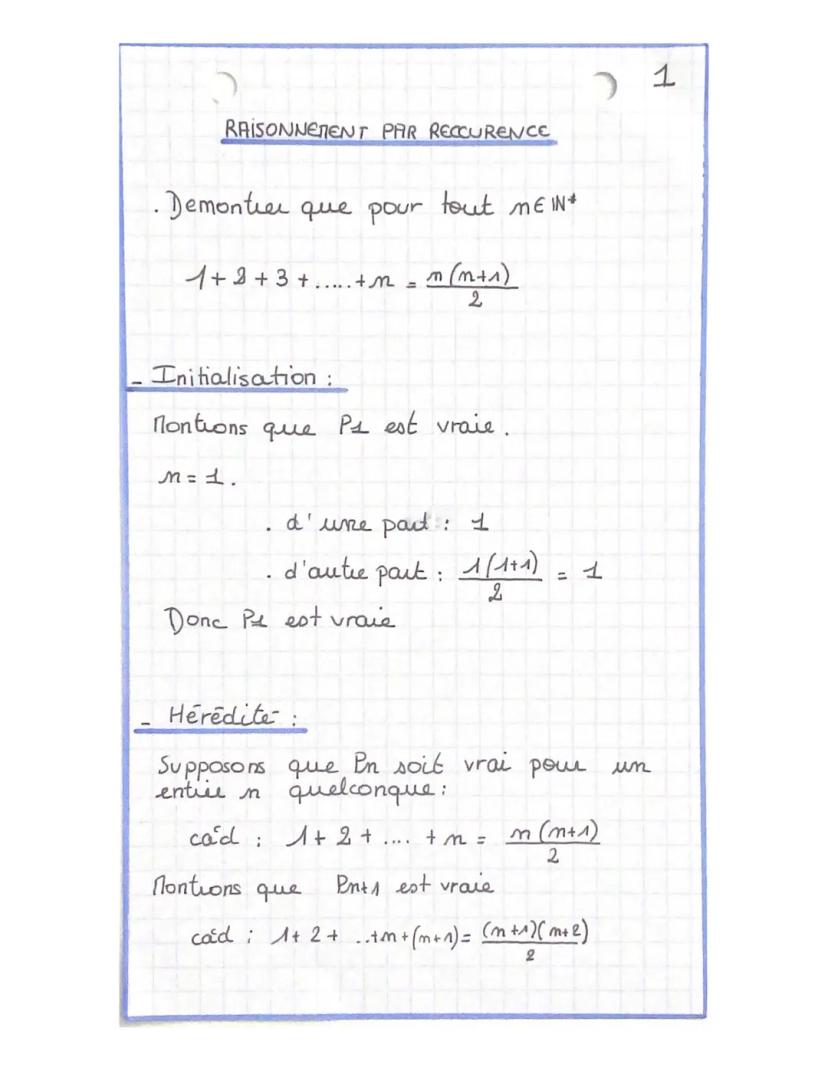 1
RAISONNEMENT PAR RECCURENCE
. Demontrer que pour tout n ∈ IN*
1 + 2 + 3 + ..... + n = n(n+1)/2
- Initialisation :
Montrons que P1 est vraie.
n = 1.
. d'une part : 1
. d'autre part : 1(1+1)/2 = 1
Donc P1 est vraie
- Hérédité :
Supposons que Pn soit vrai pour un
entier n quelconque :
càd : 1 + 2 + .... + n = n(n+1)/2
Montrons que Pn+1 est vraie
càd : 1 + 2 + ..+n+(n+1) = (n+1)(n+2)/2